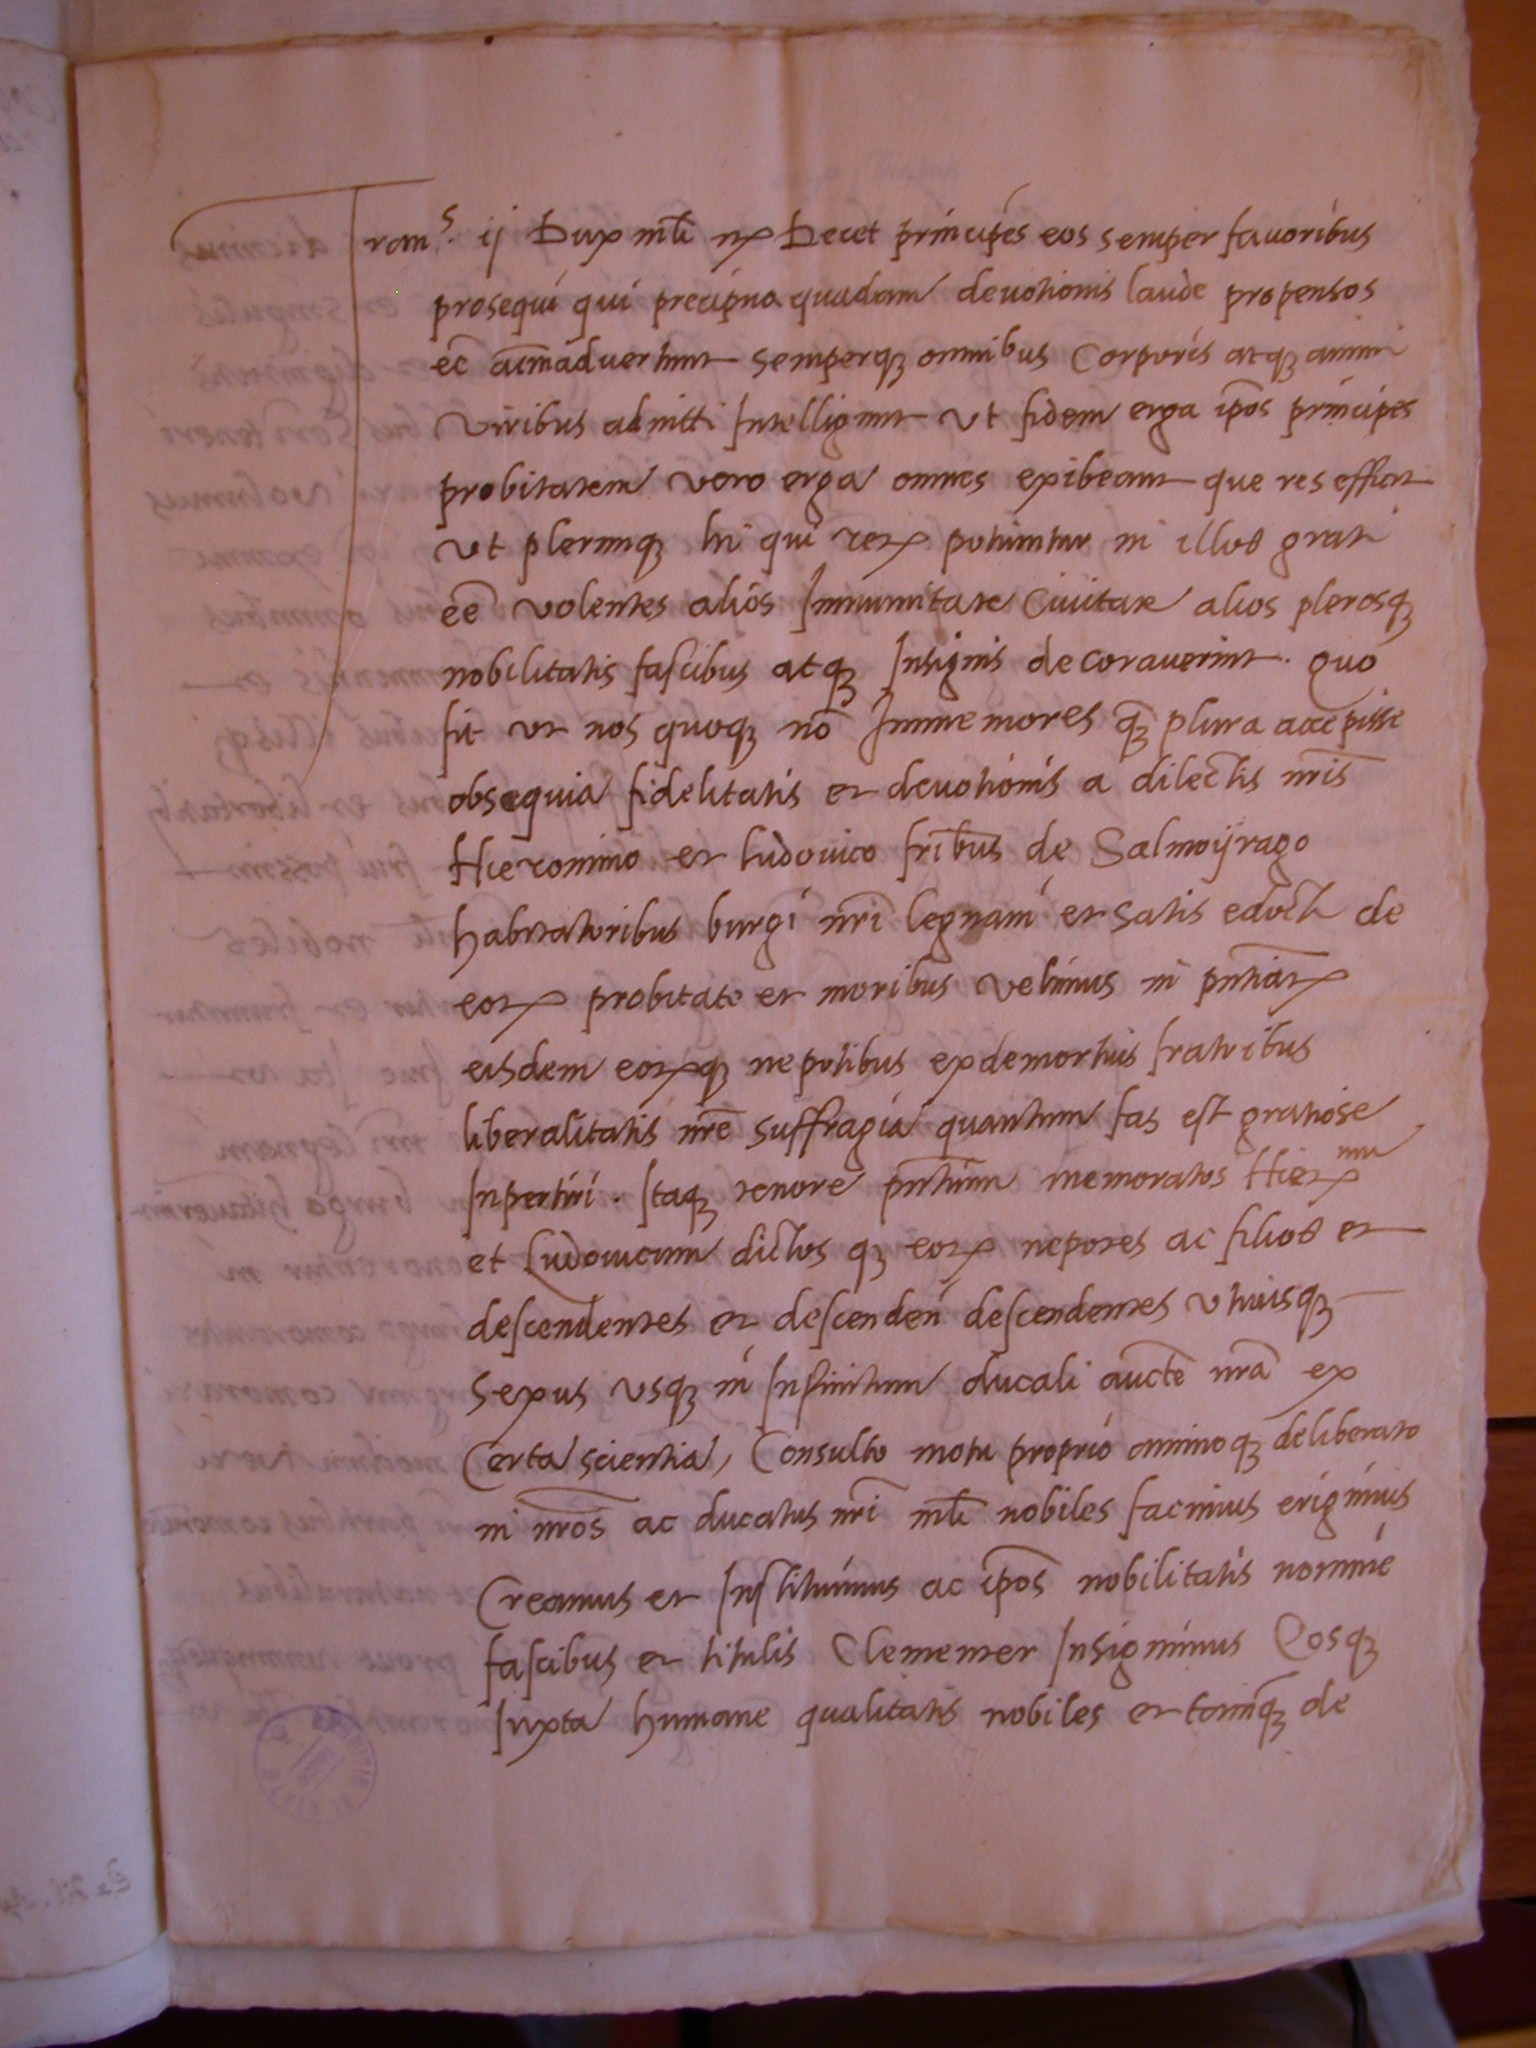 Franˢ. ij Dux mli rꝝ Decet principes eos semper favoribus
prosequi qui precipua quadam devotionis laude propensos
eē aīmadvertunt semperqꝫ omnibus Corporis atqꝫ animi
Viribus adnitti Intelligunt Ut fidem erga ip̄os principes
probitatem vero erga omnes exibeant que res efficit
Ut plerunqꝫ hi qui reꝝ potiuntur in illos grati
eē volentes alios Immunitate Civitate alios plerosqꝫ
nobilitatis fascibus atqꝫ Insignis decoraverint. Quo
fit ut nos quoqꝫ nō Immemores qꝫ plura accepisse
obsequia fidelitatis et devotionis a dilectis nr̄is
Hieronimo et ludovico fr̄ibus de Salmoÿrago
habitatoribus burgi nr̄i legnani et satis edocti de
eoꝝ probitate et moribus velimus in pn̄tiaꝝ
eisdem eoꝝqꝫ nepotibus ex demortuis fratribus
liberalitatis nr̄e suffragia quantum fas est gratiose
Inpertiri. Itaqꝫ tenore pn̄tium memoratos Hieꝝnum
et Ludovicum dictos qꝫ eoꝝ nepotes ac filios et
descendentes et descenden̄ descendentes utriusqꝫ
sexus usqꝫ in Infinitum ducali aucte nr̄a ex
Certa scientia, Consulto motu proprio animoqꝫ deliberato
in nr̄os ac ducatus nr̄i mli nobiles facimus erigimus
Creamus et Instituimus ac ip̄os nobilitatis nomine
fascibus et titulis Clementer Insignimus Eosqꝫ
Iuxta humane qualitatis nobiles et tamqꝫ de